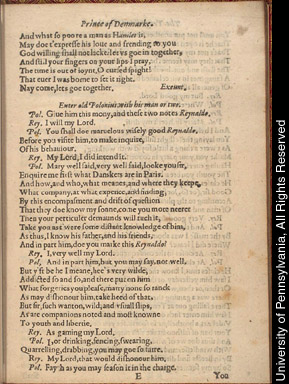 Prince of Denmarke.
And what so poore a man as Hamlet is,
May doe t'expresse his loue and frending to you
God willing shall not lack, let vs goe in together,
And still your fingers on your lips I pray,
The time is out of ioynt, O cursed spight
That euer I was borne to set it right.
Nay come, lets goe together. Exeunt.
Enter old Polonius, with his man or two.
Pol. Giue him this mony, and these two notes Reynaldo.
Rey. I will my Lord.
Pol. You shall doe maruelous wisely good Reynaldo,
Before you visite him, to make inquire,
Of his behauiour.
Rey. My Lord, I did intend it.
Pol. Mary well said, very well said, looke you sir,
Enquire me first what Danskers are in Paris,
And how, and who, what meanes, and where they keepe,
What companie, at what expence, and finding,
By this encompasment and drift of question
That they doe know my sonne, come you more neerer
Then your perticuler demaunds will tuch it,
Take you as t'were some distant knowledge of him,
As thus, I know his father, and his friends,
And in part him, doe you marke this Reynaldo?
Rey. I, very well my Lord.
Pol. And in part him, but you may say, not well,
But y'ft be he I meane, hee's very wilde,
Adicted so and so, and there put on him
What forgeries you please, marry none so ranck
As may dishonour him, take heed of that,
But sir, such wanton, wild, and vsuall slips,
As are companions noted and most knowne
To youth and libertie.
Rey. As gaming my Lord.
Pol. I, or drinking, fencing, swearing,
Quarrelling, drabbing, you may goe so far.
Rey. My Lord, that would dishonour him.
Pol. Fayth as you may season it in the charge.
E You
University of Pennsylvania, All Rights Reserved